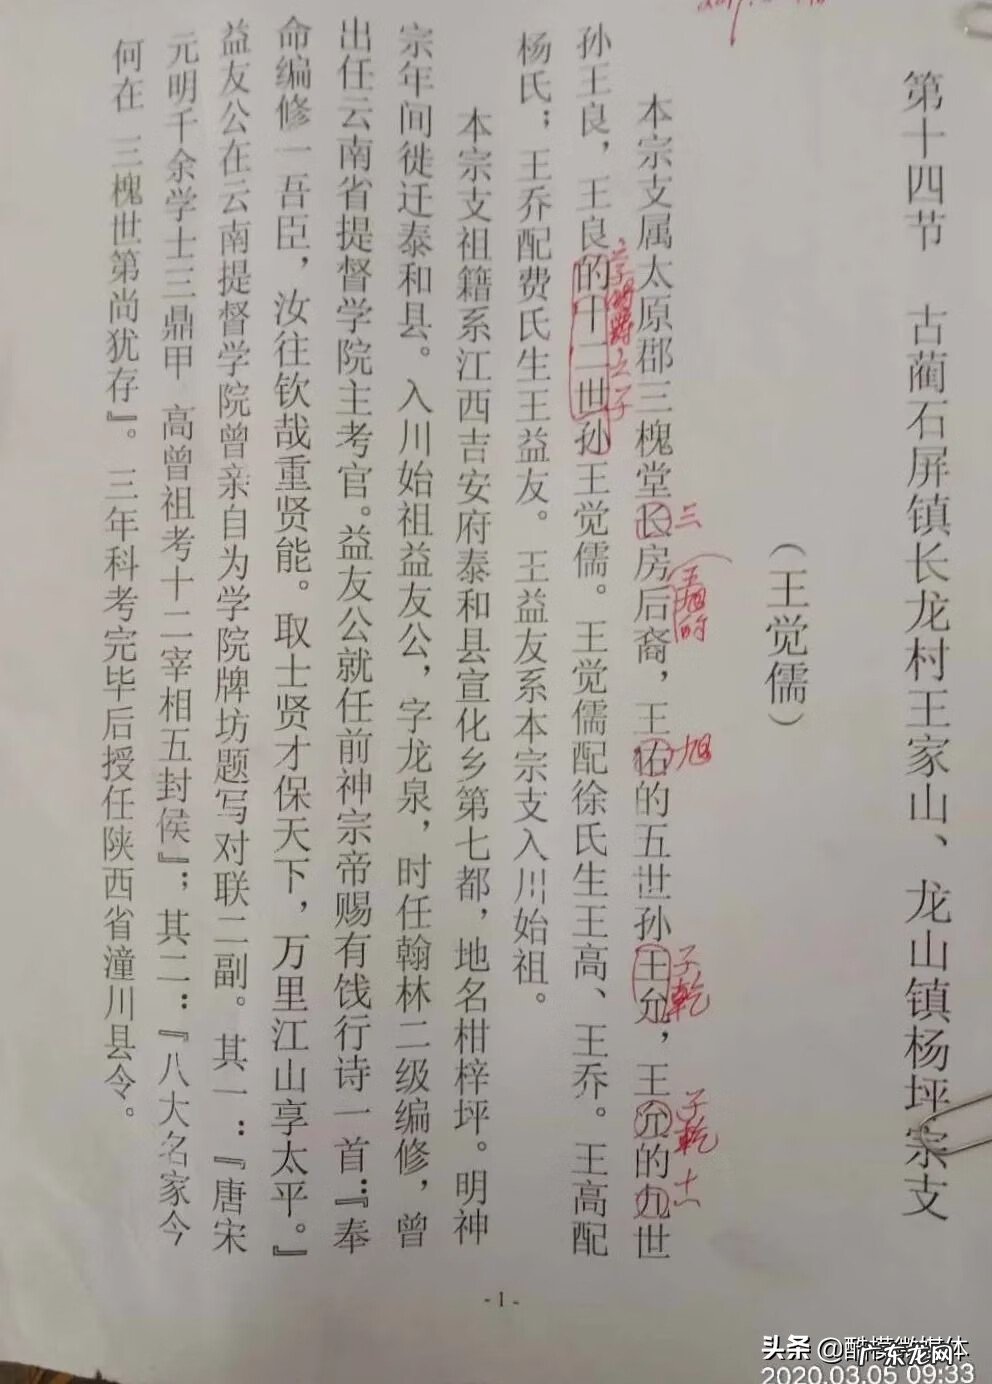 第十四节 古蔺石屏镇长龙村王家山、龙山镇杨坪宗支
（王觉儒）
本宗支属太原郡三槐堂长房后裔，王祐的五世孙王允，王允的九世
三
王旭的
旭
子乾
子乾
十二
孙王良，王良的十二世孙王觉儒。王觉儒配徐氏生王高、王乔。王高配
杨氏；王乔配费氏生王益友。王益友系本宗支入川始祖。
本宗支祖籍系江西吉安府泰和县宣化乡第七都，地名柑梓坪。明神
宗年间徙迁泰和县。入川始祖益友公，字龙泉，时任翰林二级编修，曾
出任云南省提督学院主考官。益友公就任前神宗帝赐有饯行诗一首：『奉
命编修一吾臣，汝往钦哉重贤能。取士贤才保天下，万里江山享太平。』
益友公在云南提督学院曾亲自为学院牌坊题写对联二副。其一：『唐宋
元明千余学士三鼎甲 高曾祖考十二宰相五封侯』；其二：『八大名家今
何在 三槐世第尚犹存』。三年科考完毕后授任陕西省潼川县令。
- 1 -
头条 @酷模微媒体
广东龙网
2020.03.05 09:33